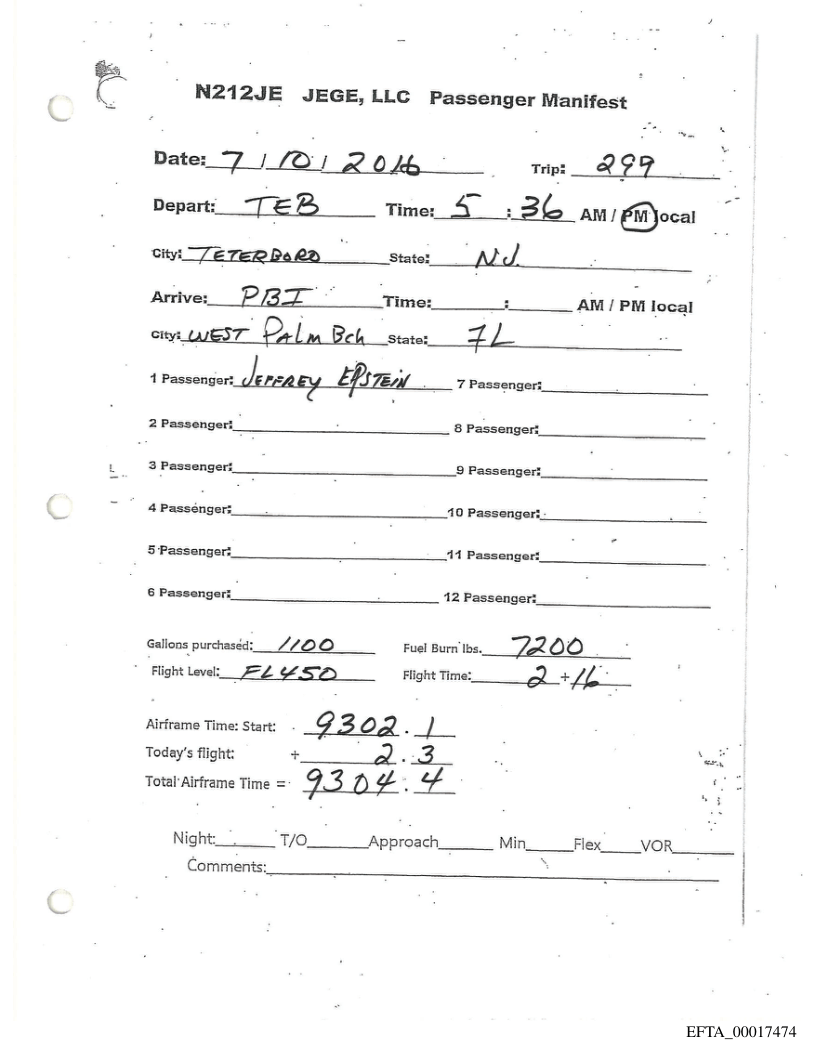 N212JE JEGE, LLC Passenger Manifest
Date: 7 / 10 / 2016 Trip: 299
Depart: TEB Time: 5 : 36 AM / PM local
City: TETERBORO State: NJ.
Arrive: PBI Time: : AM / PM local
City: WEST PALM Bch State: FL
1 Passenger: JEFFREY EPSTEIN 7 Passenger:
2 Passenger: 8 Passenger:
3 Passenger: 9 Passenger:
4 Passenger: 10 Passenger:
5 Passenger: 11 Passenger:
6 Passenger: 12 Passenger:
Gallons purchased: 1100 Fuel Burn lbs. 7200
Flight Level: FL450 Flight Time: 2 + 16
Airframe Time: Start: 9302.1
Today's flight: + 2.3
Total Airframe Time = 9304.4
Night: T/O Approach Min Flex VOR
Comments:
EFTA_00017474